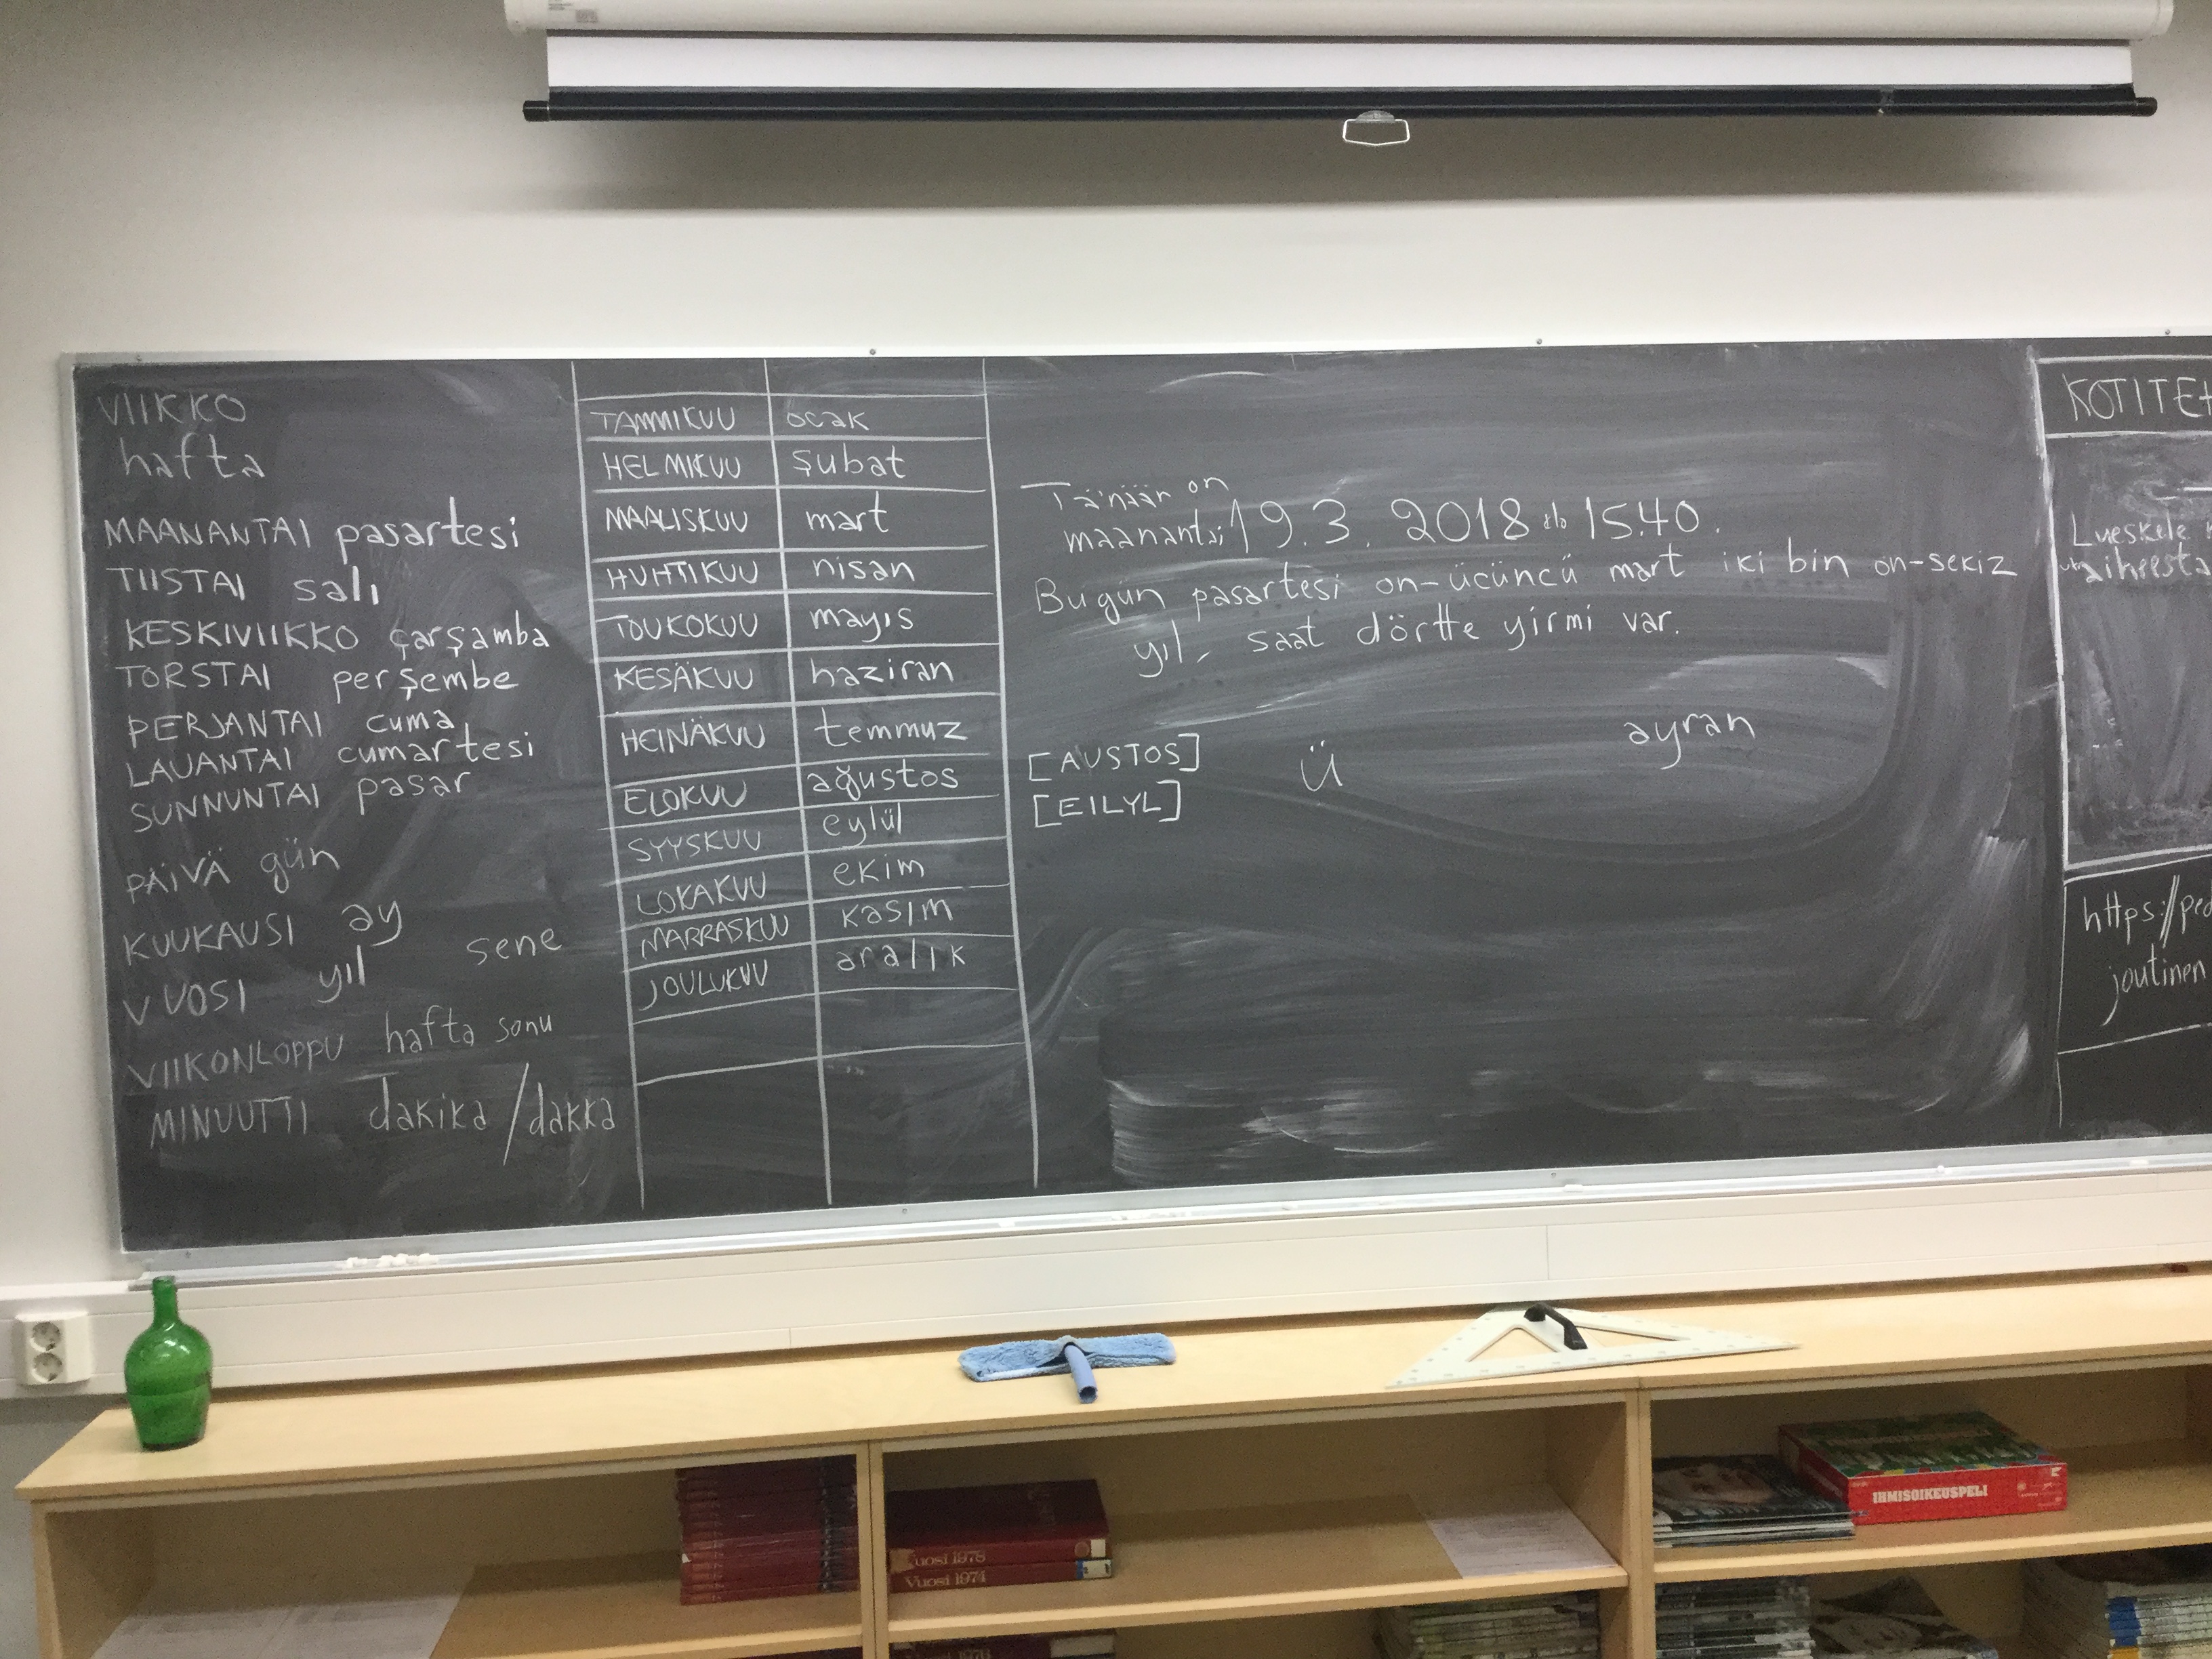 VIIKKO
hafta
MAANANTAI pasartesi
TIISTAI salı
KESKIVIIKKO çarşamba
TORSTAI perşembe
PERJANTAI cuma
LAUANTAI cumartesi
SUNNUNTAI pasar
PÄIVÄ gün
KUUKAUSI ay
VUOSI yıl sene
VIIKONLOPPU hafta sonu
MINUUTTI dakika/dakka
TAMMIKUU ocak
HELMIKUU şubat
MAALISKUU mart
HUHTIKUU nisan
TOUKOKUU mayıs
KESÄKUU haziran
HEINÄKUU temmuz
ELOKUU ağustos
SYYSKUU eylül
LOKAKUU ekim
MARRASKUU kasım
JOULUKUU aralık
Tänään on
maanantai 19.3. 2018 klo 15.40.
Bugün pasartesi on-üçüncü mart iki bin on-sekiz
yıl, saat dörtte yirmi var.
[AUSTOS] Ü ayran
[EILYL]
Lueskele
aiheesta
https://ped
joutinen
Vuosi 1978
Vuosi 1974
IHMISOIKEUSPELI